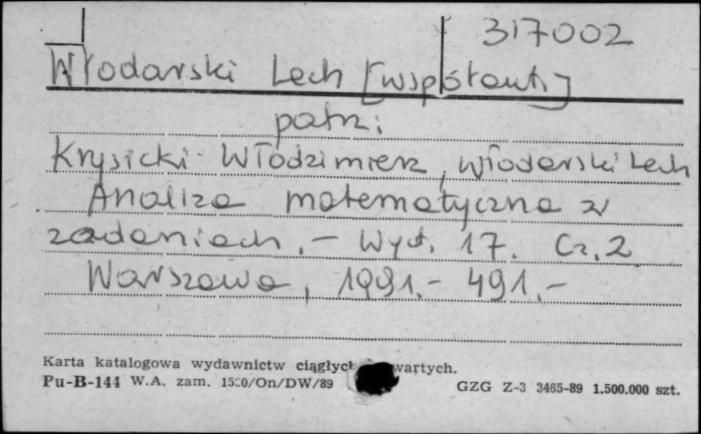 317002
Włodarski Lech [współaut.]
patrz:
Krysicki Włodzimierz, Włodarski Lech
Analiza matematyczna w
zadaniach. – Wyd. 17. Cz. 2
Warszawa, 1991. – 491. –
Karta katalogowa wydawnictw ciągłych wartych.
Pu-B-144 W.A. zam. /On/DW/89 GZG Z-3 3465-89 1.500.000 szt.